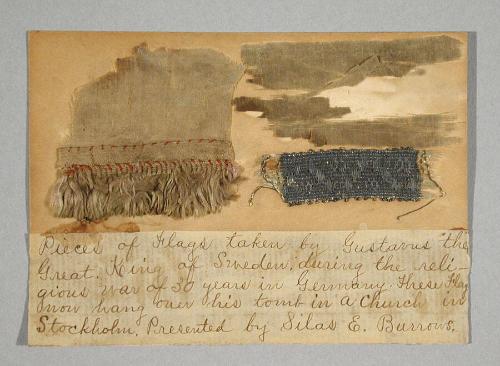 Pieces of Flags taken by Gustavus the
Great, King of Sweden, during the reli-
gious war of 30 years in Germany. These Flags
now hang over his tomb in a Church in
Stockholm. Presented by Silas E. Burrows.